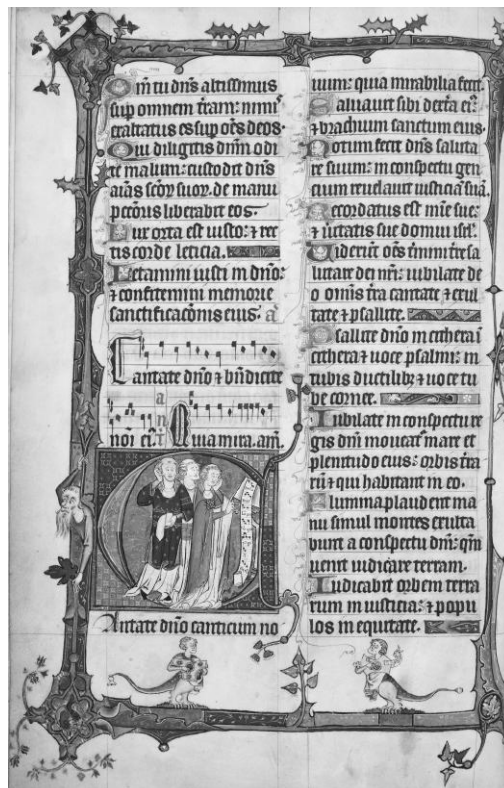 Qm̅ tu dn̅s altissimus
sup omnem tr̅am: nimis
exaltatus es sup om̅s deos.
Qui diligitis dn̅m odi
te malum: custodit dn̅s
ai̅as sc̅oꝝ suoꝝ. de manu
pecc̅oris liberabit eos.
Lux orta est iusto: ⁊ rec
tis corde leticia.
Letamini iusti in dn̅o:
⁊ confitemini memorie
sanctificac̅onis eius. a̅
Cantate dn̅o ⁊ bn̅dicite
noi̅ ei᷒. an̅ Quia mira. am̅.
CAntate dn̅o canticum no
uum: quia mirabilia fecit.
Saluauit sibi dext̅a ei᷒:
⁊ brachium sanctum eius.
Notum fecit dn̅s saluta
re suum: in conspectu gen
cium reuelauit iusticiā suā.
Recordatus est mi̅e sue:
⁊ ūitatis sue domui isr̅l.
Uiderūt om̅s t̅mini tr̅e sa
lutare dei nr̅i: iubilate de
o omnis tr̅a cantate ⁊ exul
tate ⁊ psallite.
Psallite dn̅o in cithera ī
cithera ⁊ uoce psalmi: in
tubis ductilibꝫ ⁊ uoce tu
be cornee.
Iubilate in conspectu re
gis dn̅i moueat᷑ mare et
plenitudo eius: orbis tr̅a
rū ⁊ qui habitant in eo.
Flumina plaudent ma
nu simul montes exulta
bunt a conspectu dn̅i: qm̅
uenit iudicare terram.
Iudicabit orbem terra
rum in iusticia: ⁊ popu
los in equitate.